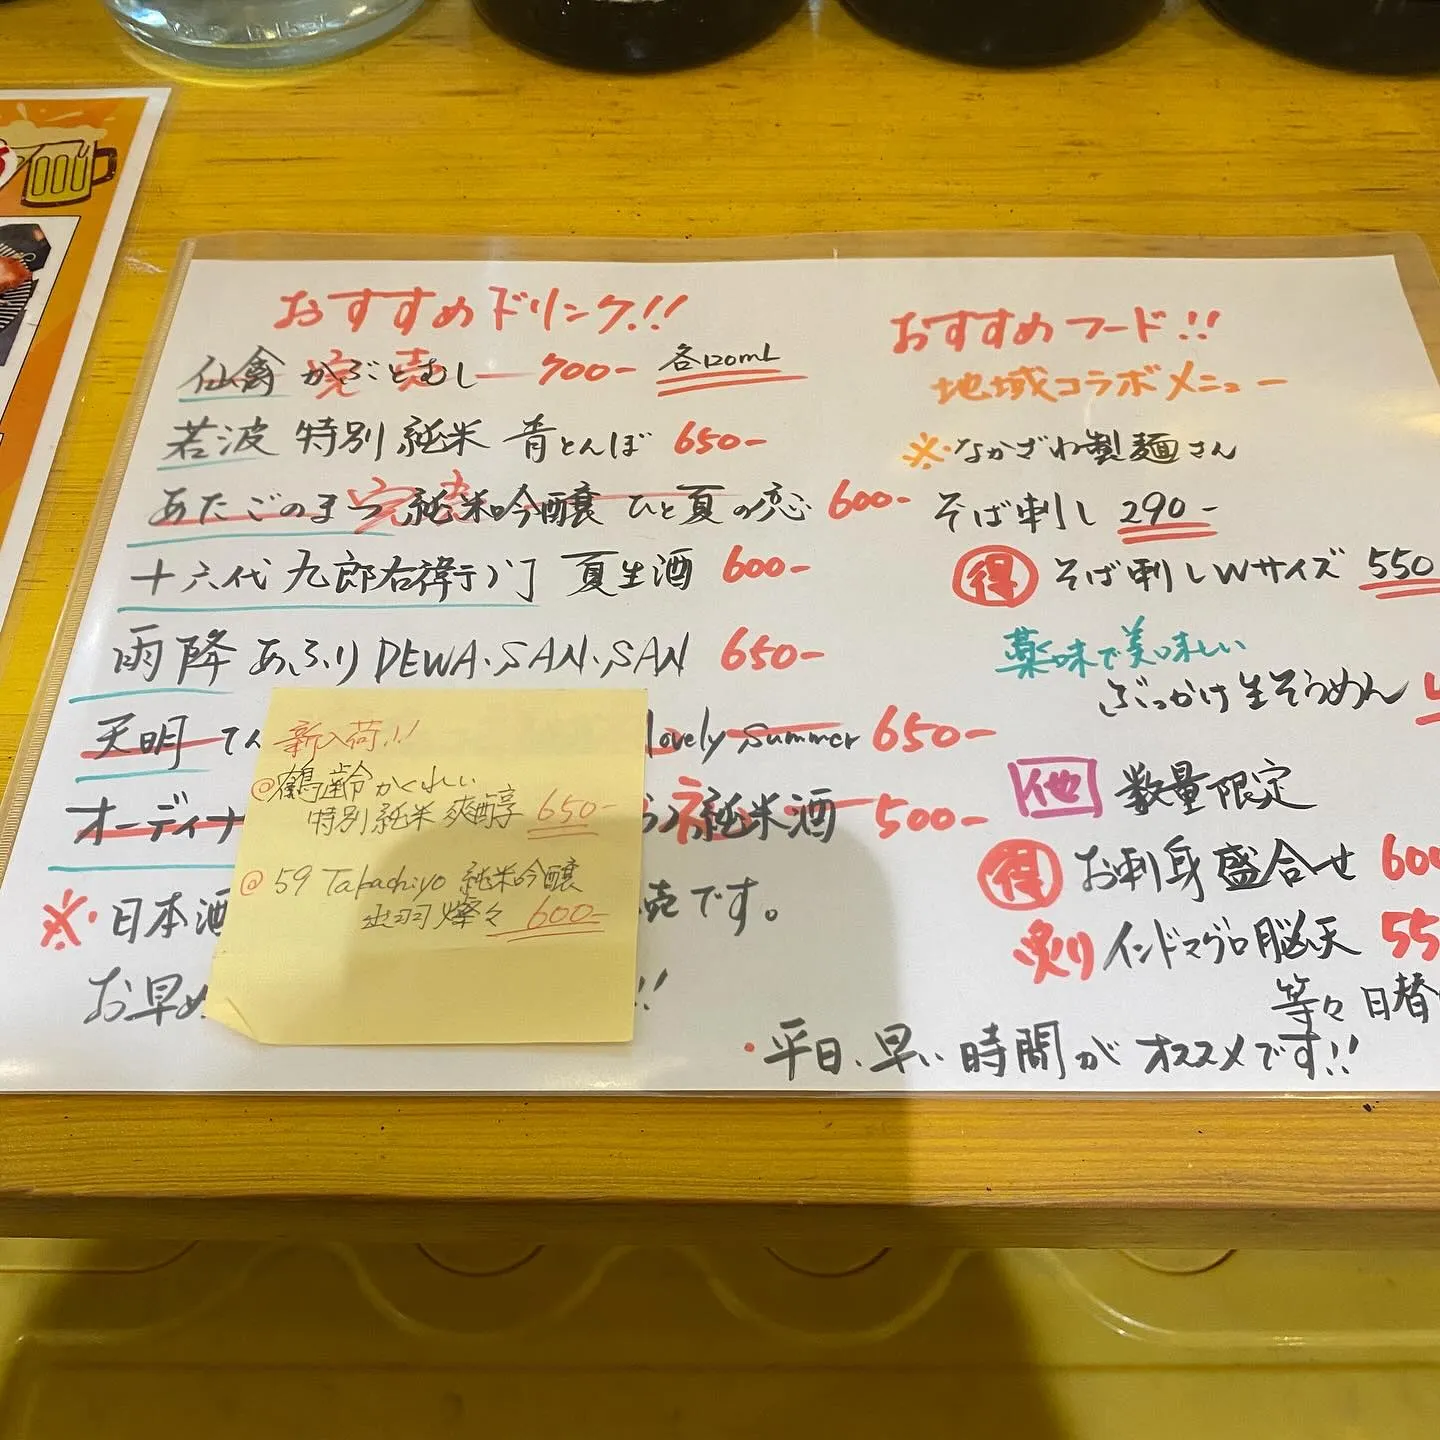 おすすめドリンク!!
仙禽 かぶとむし 700- 各120mL
完売
若波 特別純米 青とんぼ 650-
あたごのまつ 純米吟醸 ひと夏の恋 600-
完売
十六代九郎右衛門 夏生酒 600-
雨降 あふり DEWA・SAN・SAN 650-
天明 てん lovely summer 650-
オーディナ 純米酒 500-
※・日本酒 売です。
お早め !!
新入荷!!
◎鶴齢 かくれい
特別純米 爽醇 650-
◎59 Takachiyo 純米吟醸
出羽燦々 600-
おすすめフード!!
地域コラボメニュー
※・なかざわ製麺さん
そば刺し 290-
得 そば刺しWサイズ 550
薬味で美味しい
ぶっかけ生そうめん
他 数量限定
得 お刺身盛合せ 600
炙り インドマグロ脳天 55
等々日替
・平日、早い時間がオススメです!!